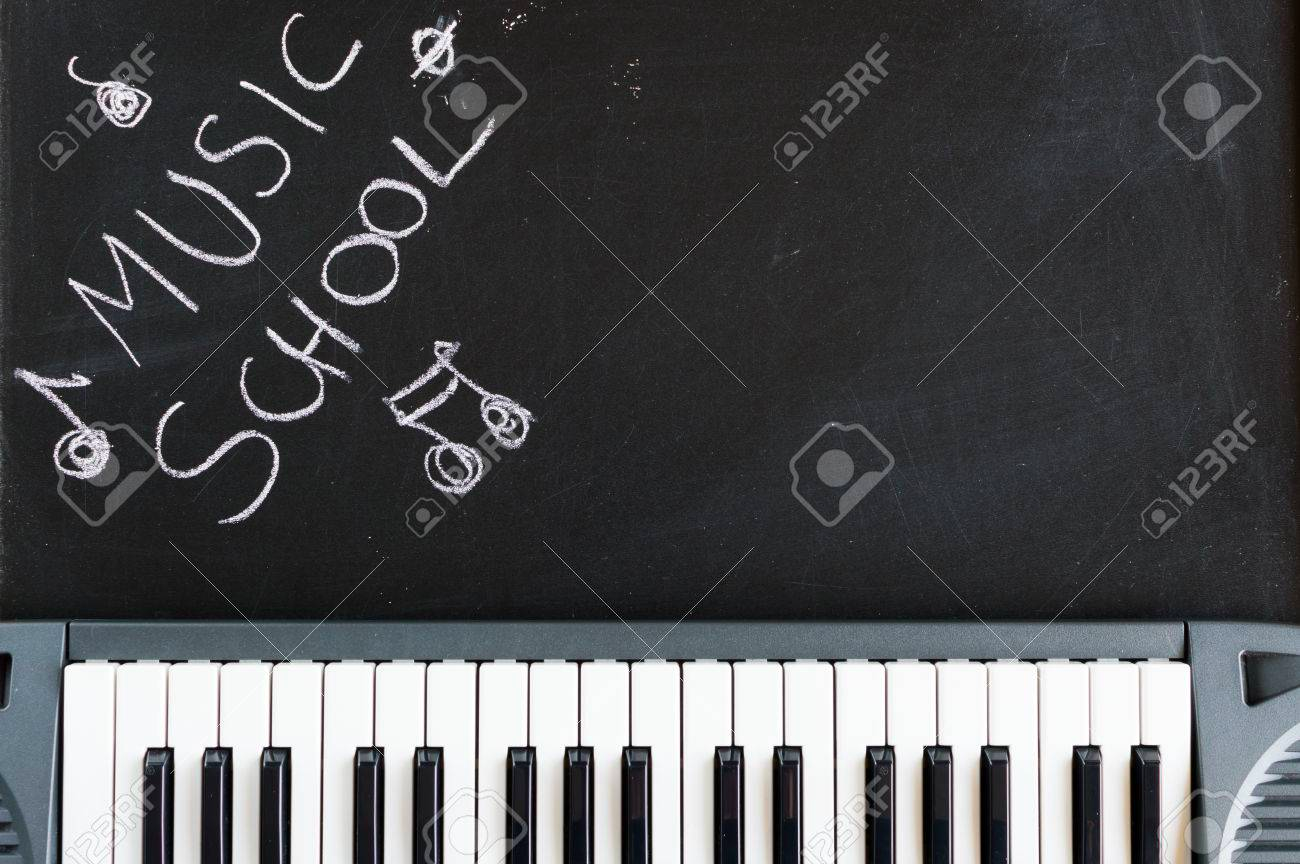 MUSIC
SCHOOL
123RF
123RF
123RF
123RF
123RF
123RF